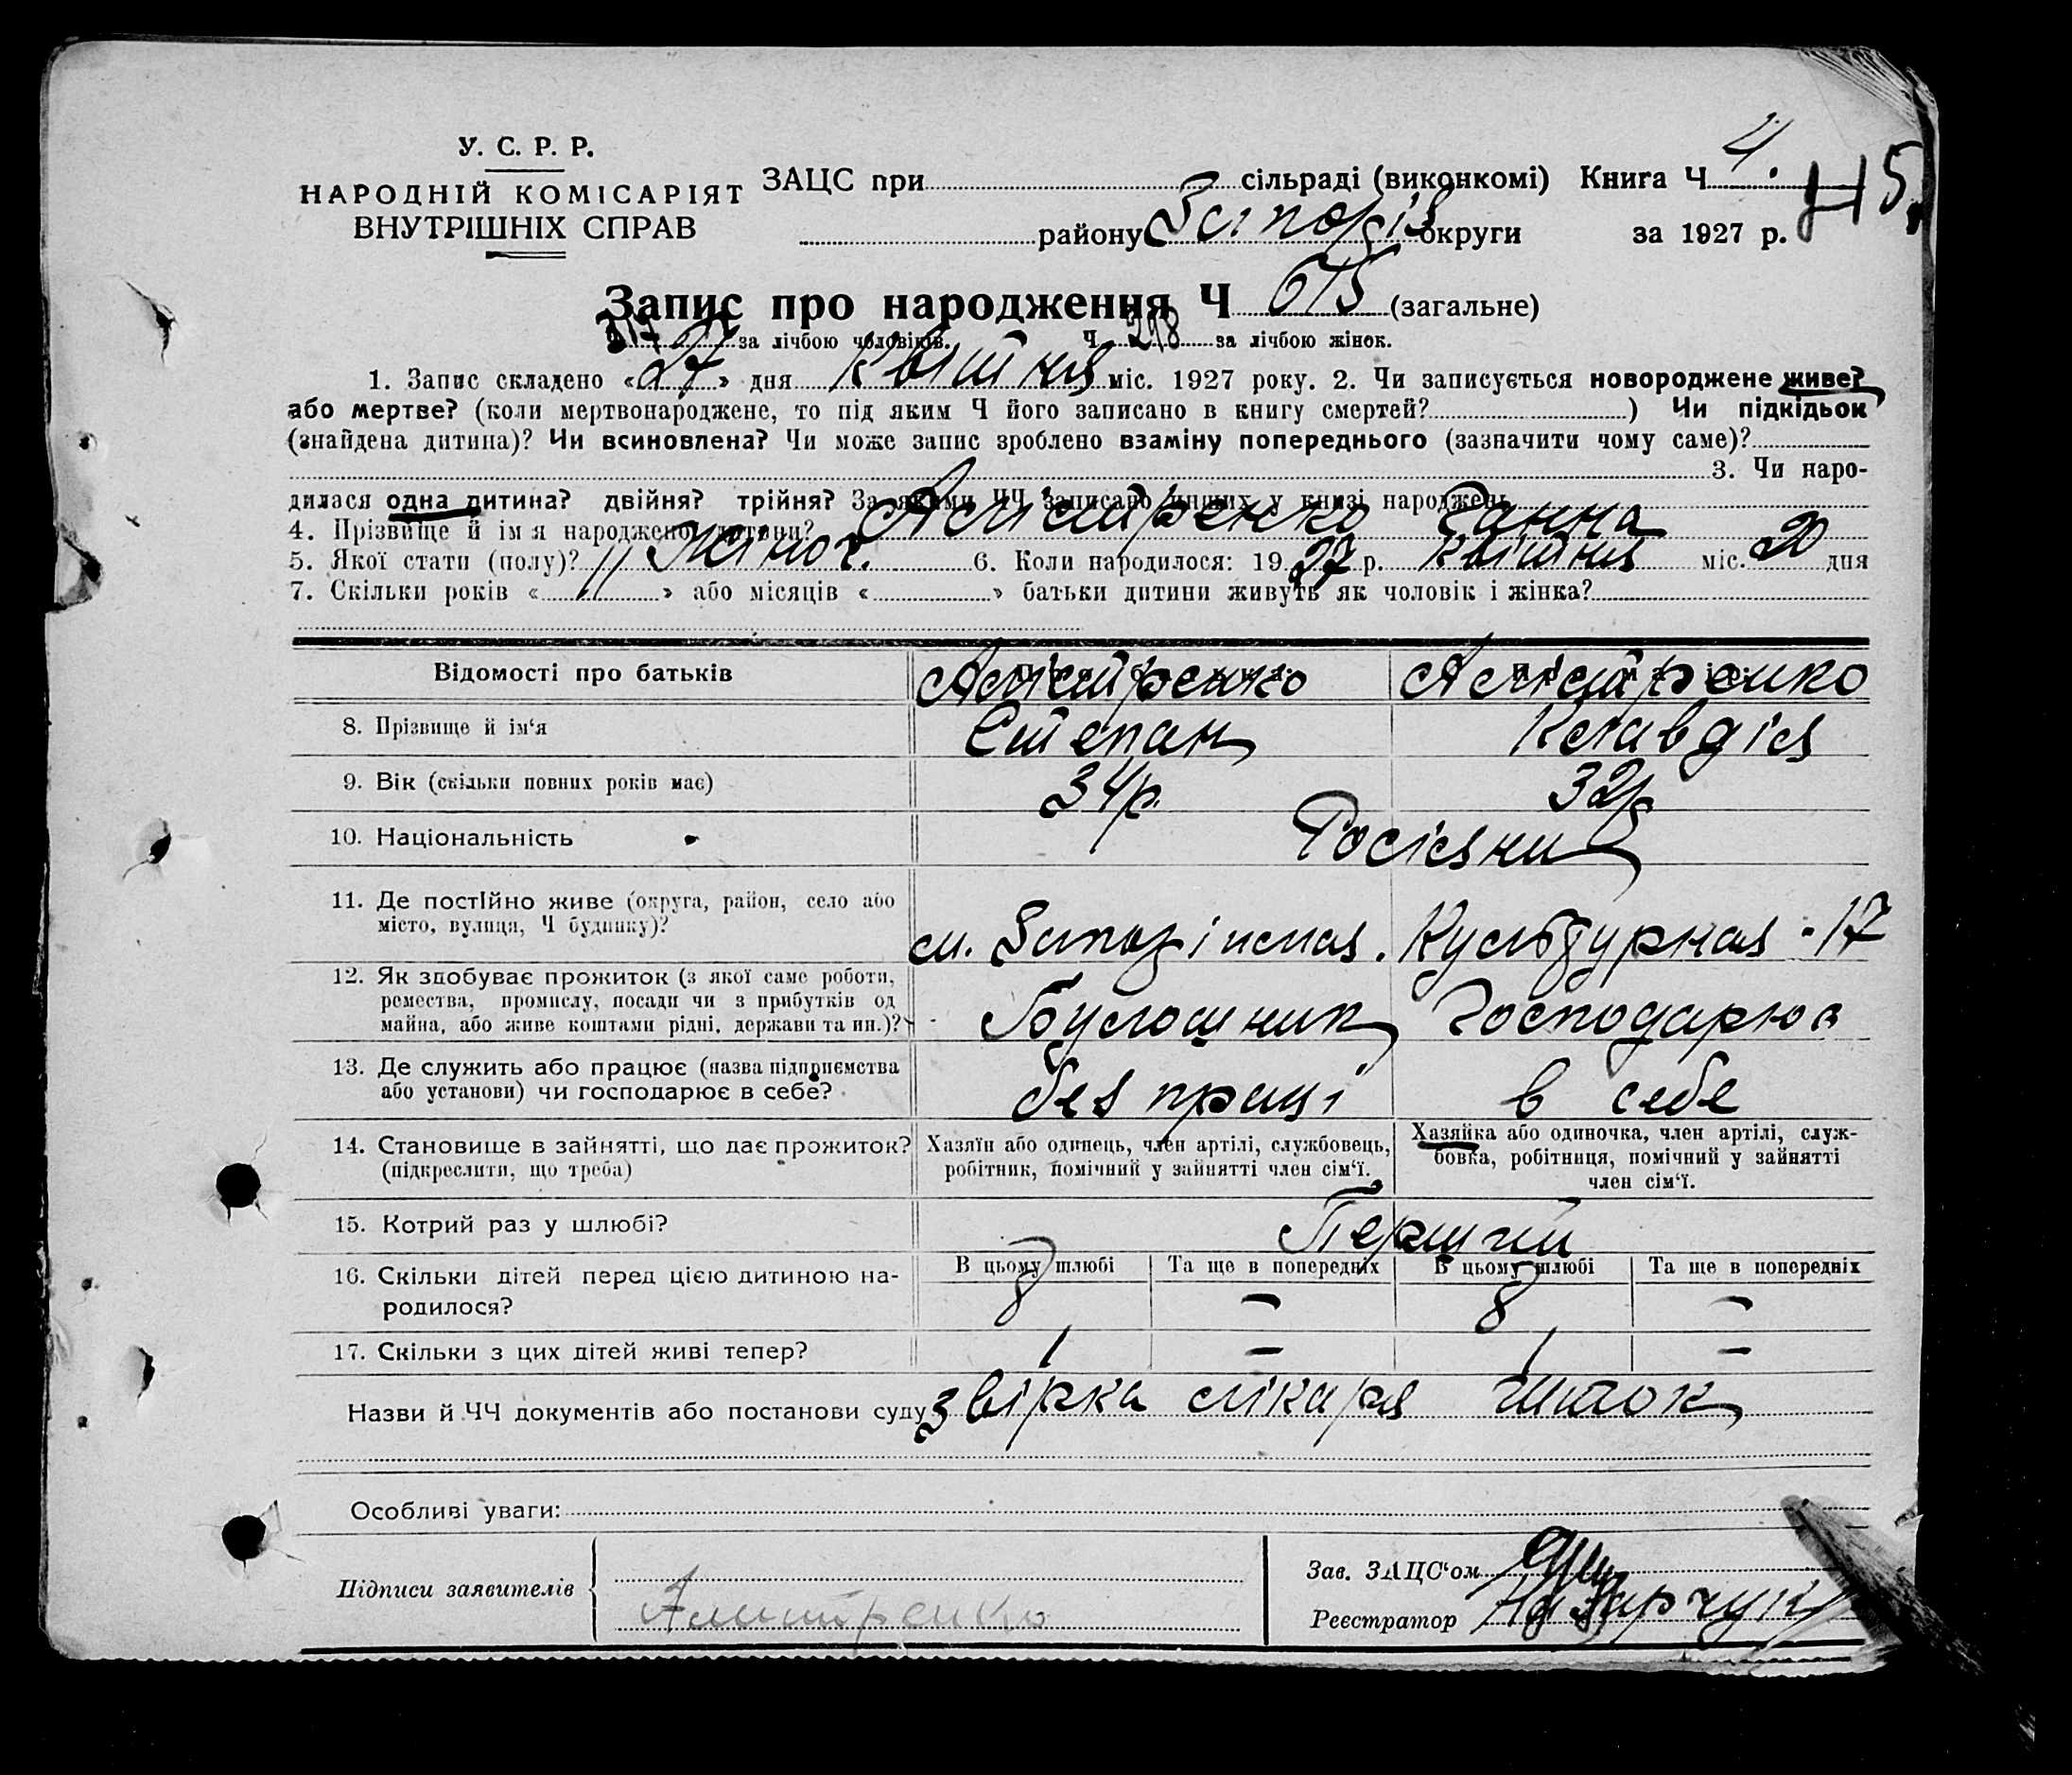 У. С. Р. Р.
НАРОДНІЙ КОМІСАРІЯТ
ВНУТРІШНІХ СПРАВ
ЗАЦС при сільраді (виконкомі) Книга Ч 4.
115.
району Запоріз округи за 1927 р.
Запис про народження Ч 615 (загальне)
за лічбою чоловіків. Ч 298 за лічбою жінок.
1. Запис складено «27» дня квітня міс. 1927 року. 2. Чи записується новороджене живе?
або мертве? (коли мертвонароджене, то під яким Ч його записано в книгу смертей? ) Чи підкідьок
(знайдена дитина)? Чи всиновлена? Чи може запис зроблено взаміну попереднього (зазначити чому саме)?
3. Чи наро-
дилася одна дитина? двійня? трійня? За якими ЧЧ записано инших у книзі народжень
4. Прізвище й ім'я народженої дитини? Алістренко Ганна
5. Якої стати (полу)? Жіноч. 6. Коли народилося: 1927 р. квітня міс. 20 дня
7. Скільки років « 11 » або місяців « » батьки дитини живуть як чоловік і жінка?
Відомості про батьків Алістренко Алістренко
8. Прізвище й ім'я Степан Клавдія
9. Вік (скільки повних років має) 34р. 32р
10. Національність Росіяни
11. Де постійно живе (округа, район, село або
місто, вулиця, Ч будинку)? м. Запоріжжя. Культурная - 17
12. Як здобуває прожиток (з якої саме роботи,
ремества, промислу, посади чи з прибутків од
майна, або живе коштами рідні, держави та ин.)? Булошник Господарює
13. Де служить або працює (назва підприємства
або установи) чи господарює в себе? без праці в себе
14. Становище в зайнятті, що дає прожиток?
(підкреслити, що треба)
Хазяїн або одинець, член артілі, службовець,
робітник, помічний у зайнятті член сім'ї.
Хазяйка або одиночка, член артілі, служ-
бовка, робітниця, помічний у зайнятті
член сім'ї.
15. Котрий раз у шлюбі? Перший
16. Скільки дітей перед цією дитиною на-
родилося?
В цьому шлюбі Та ще в попередніх В цьому шлюбі Та ще в попередніх
8 – 8 –
17. Скільки з цих дітей живі тепер? 1 – 1 –
Назви й ЧЧ документів або постанови суду звірка лікаря
Особливі уваги:
Підписи заявителів
Алистренко
Зав. ЗАЦС'ом
Реєстратор Назарчук